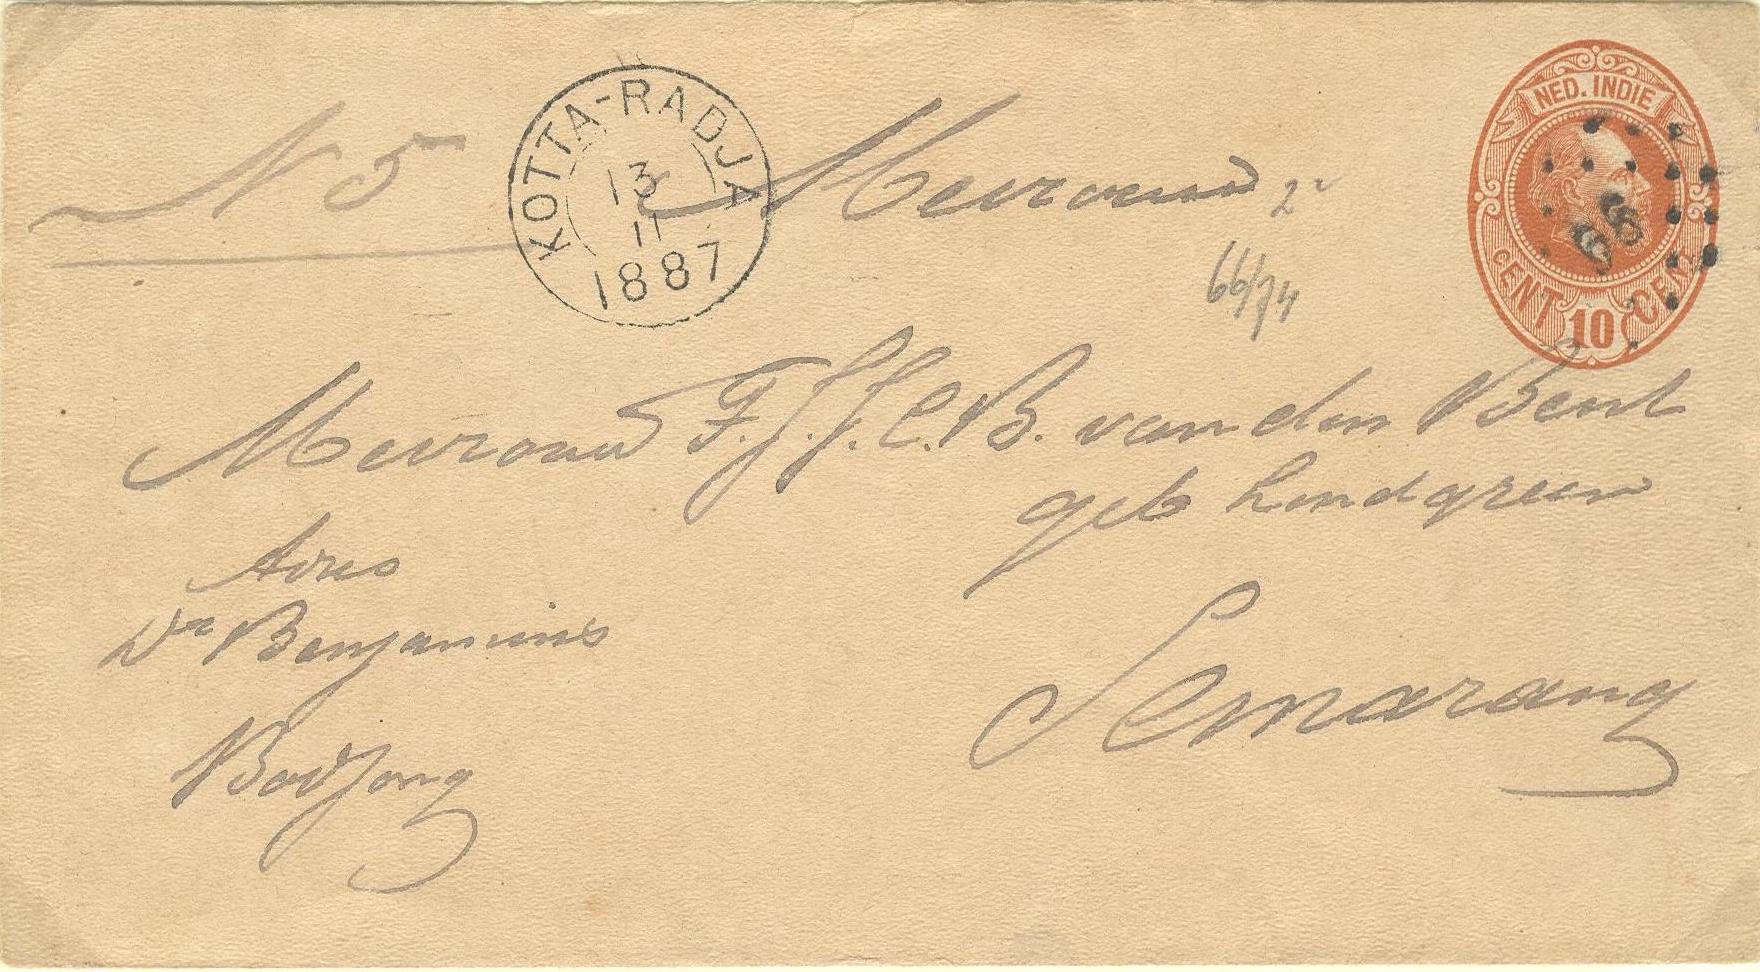 N 5
KOTTA-RADJA
13
11
1887
Mevrouw
66/74
NED. INDIE
CENT 10 CENT
66
Mevrouw F. J. J. C. B. van den Bent
geb Lindgreen
Adres
Dr Benjamins
Bodjong
Semarang